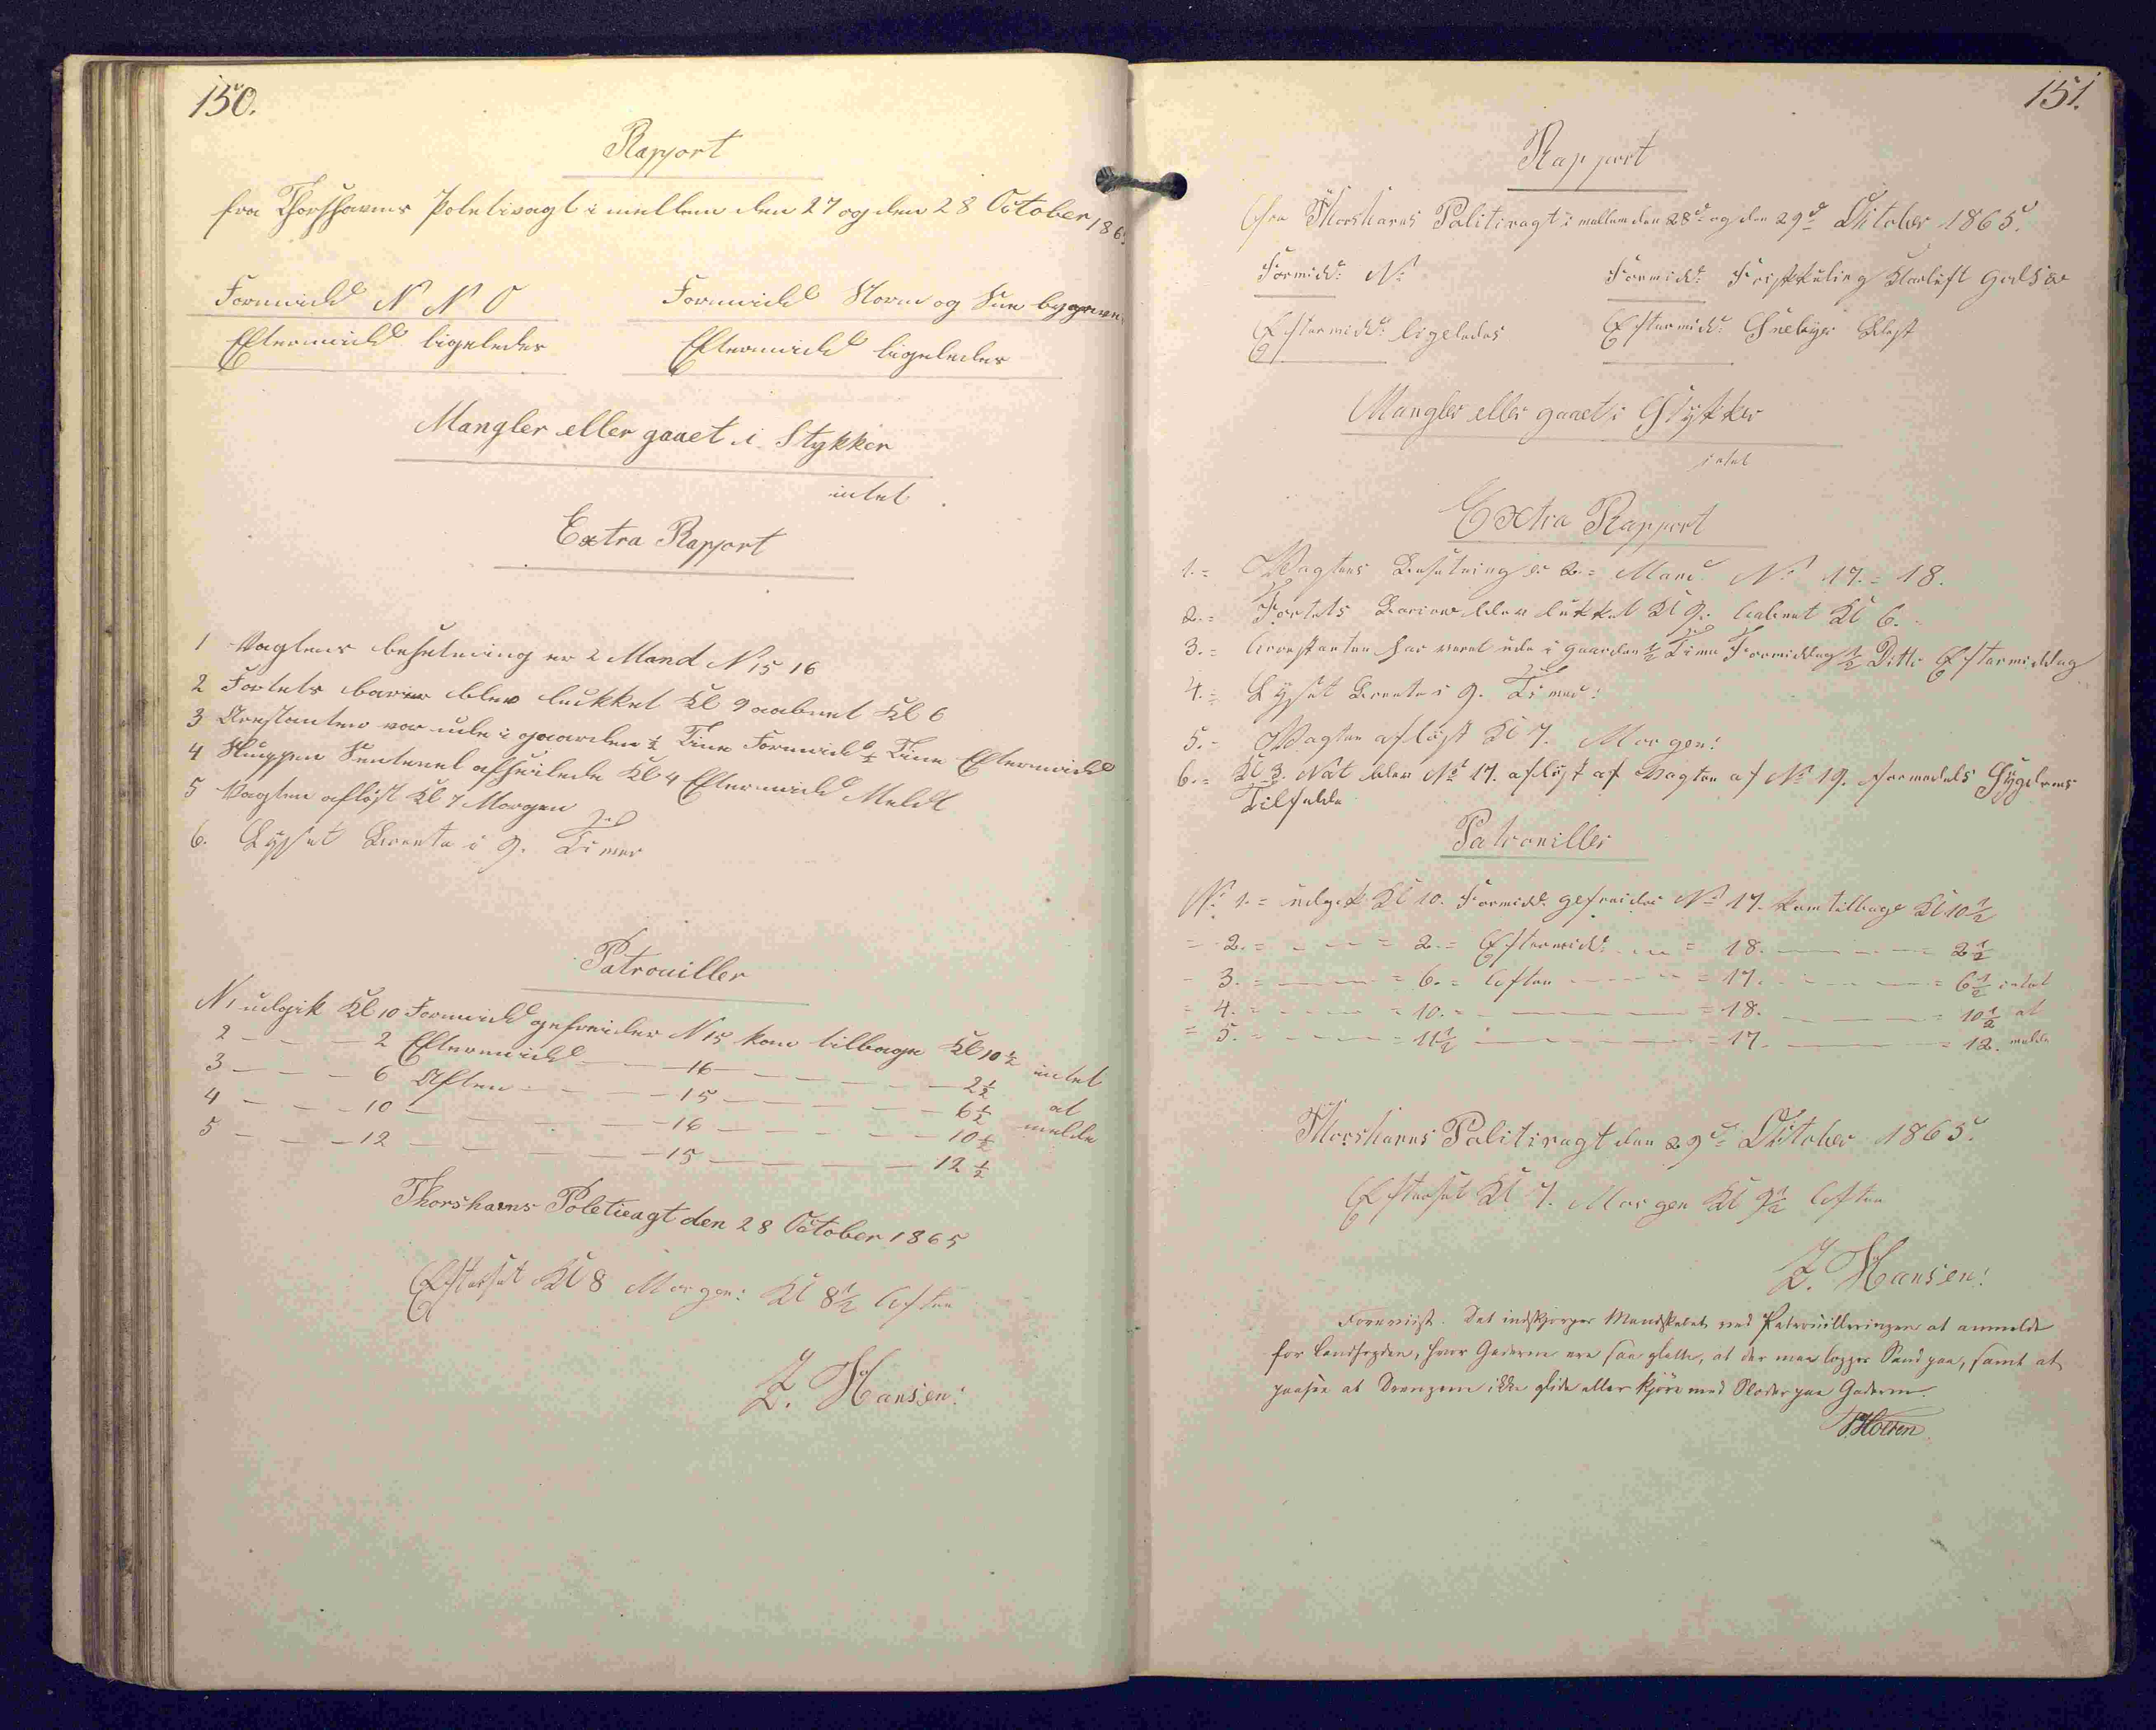 150.
Rapport
fra Thorshavns Poletivagt i mellem den 27 og den 28 October 1865
Formidd N N O Formidd Storm og Sne byger
Eftermidd ligeledes Eftermidd ligeledes
Mangler eller gaaet i Stykker
intet
Extra Rapport
1 Vagtens besetning er 2 Mand N 15 16
2 Fortets barier blev lukket Kl 9 aabnet Kl 6
3 Arestanten var ude i gaarden ½ Time Formidd ½ Time Eftermidd
4 Sluppen afseilede Kl 4 Eftermidd Meldt
5 Vagten aflöst Kl 7 Morgen
6. Lyset Brente i 9. Timer
Patrouiller
N 1 udgik Kl 10 Formidd gefreider N 15 kom tilbage Kl 10½ intet
2 — — — 2 Eftermidd — — 16 — — — — 2½ at
3 — — — 6 Aften — — — 15 — — — — 6½ melde
4 — — — 10 — — — 16 — — — — 10½
5 — — — 12 — — — 15 — — — — 12½
Thorshavns Poletivagt den 28 October 1865
Efterset Kl 8 Morgen: Kl 8½ Aften
Z. Hansen!
151.
Rapport
Fra Thorshavns Politivagt i mellem den 28d og den 29d Oktober 1865.
Formidd: N: Formidd: Friskkuling Klarluft
Eftermidd: ligeledes Eftermidd: Snebyer Blæst
Mangler eller gaaet i Stykker
intet
Extra Rapport
1.= Vagtens Besetning er 2.= Mand. No 17.= 18.
2.= Fortets Bariere blev lukket Kl 9. aabnet Kl 6.
3.= Arrestanten har veret ude i gaarden ½ Time Formiddag ½ Ditto Eftermiddag
4.= Lyset Brente i 9. Timer!
5.= Vagten aflöst Kl 7. Morgen!
6.= Kl 3. Nat blev No 17. aflöst af Vagten af No 19. formedels Sygdoms
Tilfelde
Patrouiller
No 1.= udgik Kl 10. Formidd. gefreider No 17. kom tilbage Kl 10½
= 2.= — — = 2.= Eftermidd: — = 18. — — = 2½
= 3.= — — = 6.= Aften — — = 17. — — = 6½ intet
= 4.= — — = 10.= — — = 18. — — = 10½ at
= 5.= — — = 11½ — — = 17. — — = 12. melde
Thorshavns Politivagt den 29d Oktober 1865.
Efterset Kl 7. Morgen Kl 9½ Aften
Z. Hansen!
Foreviist. Det indskjerpes Mandskabet ved Patrouilleringen at anmelde
for Landfogden, hvor Gaderne ere saa glatte, at der maa lægges Sand paa, samt at
paasee at Drengene ikke glide eller kjøre med Slæder paa Gaderne.